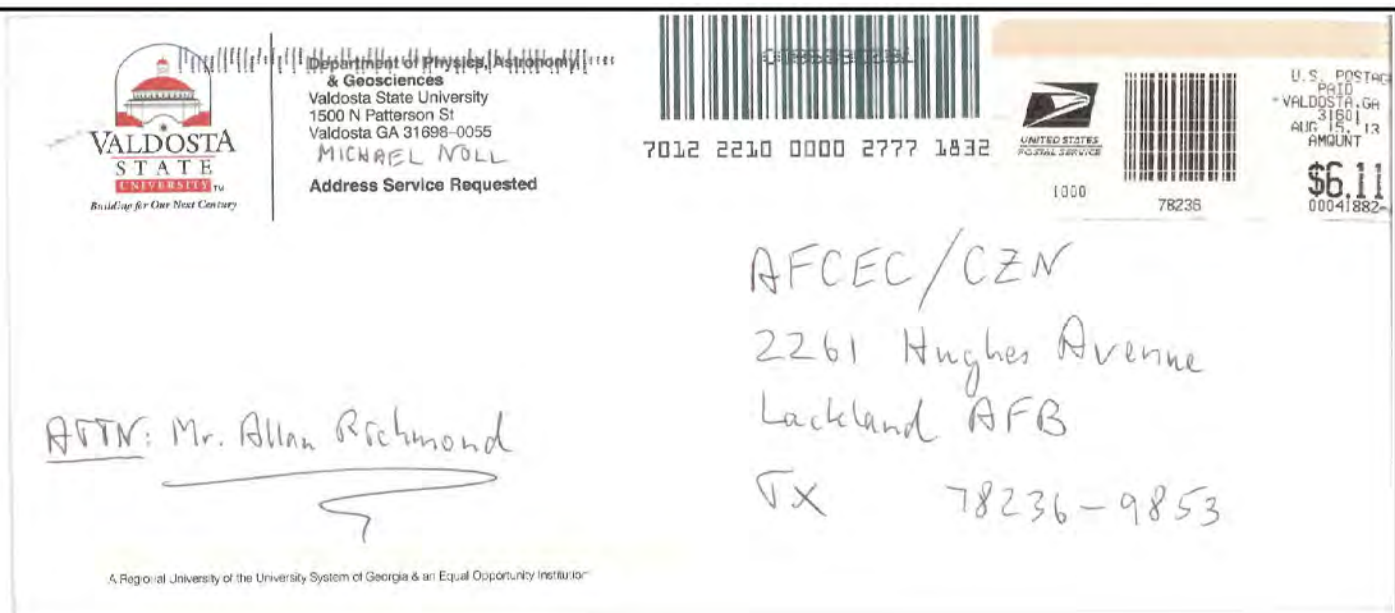 VALDOSTA
STATE
UNIVERSITY TM
Building for Our Next Century
Department of Physics, Astronomy,
& Geosciences
Valdosta State University
1500 N Patterson St
Valdosta GA 31698-0055
MICHAEL NOLL
Address Service Requested
7012 2210 0000 2777 1832
UNITED STATES
POSTAL SERVICE
1000
78236
U.S. POSTAG
PAID
VALDOSTA.GA
31601
AUG 15, 13
AMOUNT
$6.11
00041882-
AFCEC/CZN
2261 Hughes Avenue
Lackland AFB
TX 78236-9853
ATTN: Mr. Allan Richmond
A Regional University of the University System of Georgia & an Equal Opportunity Institution